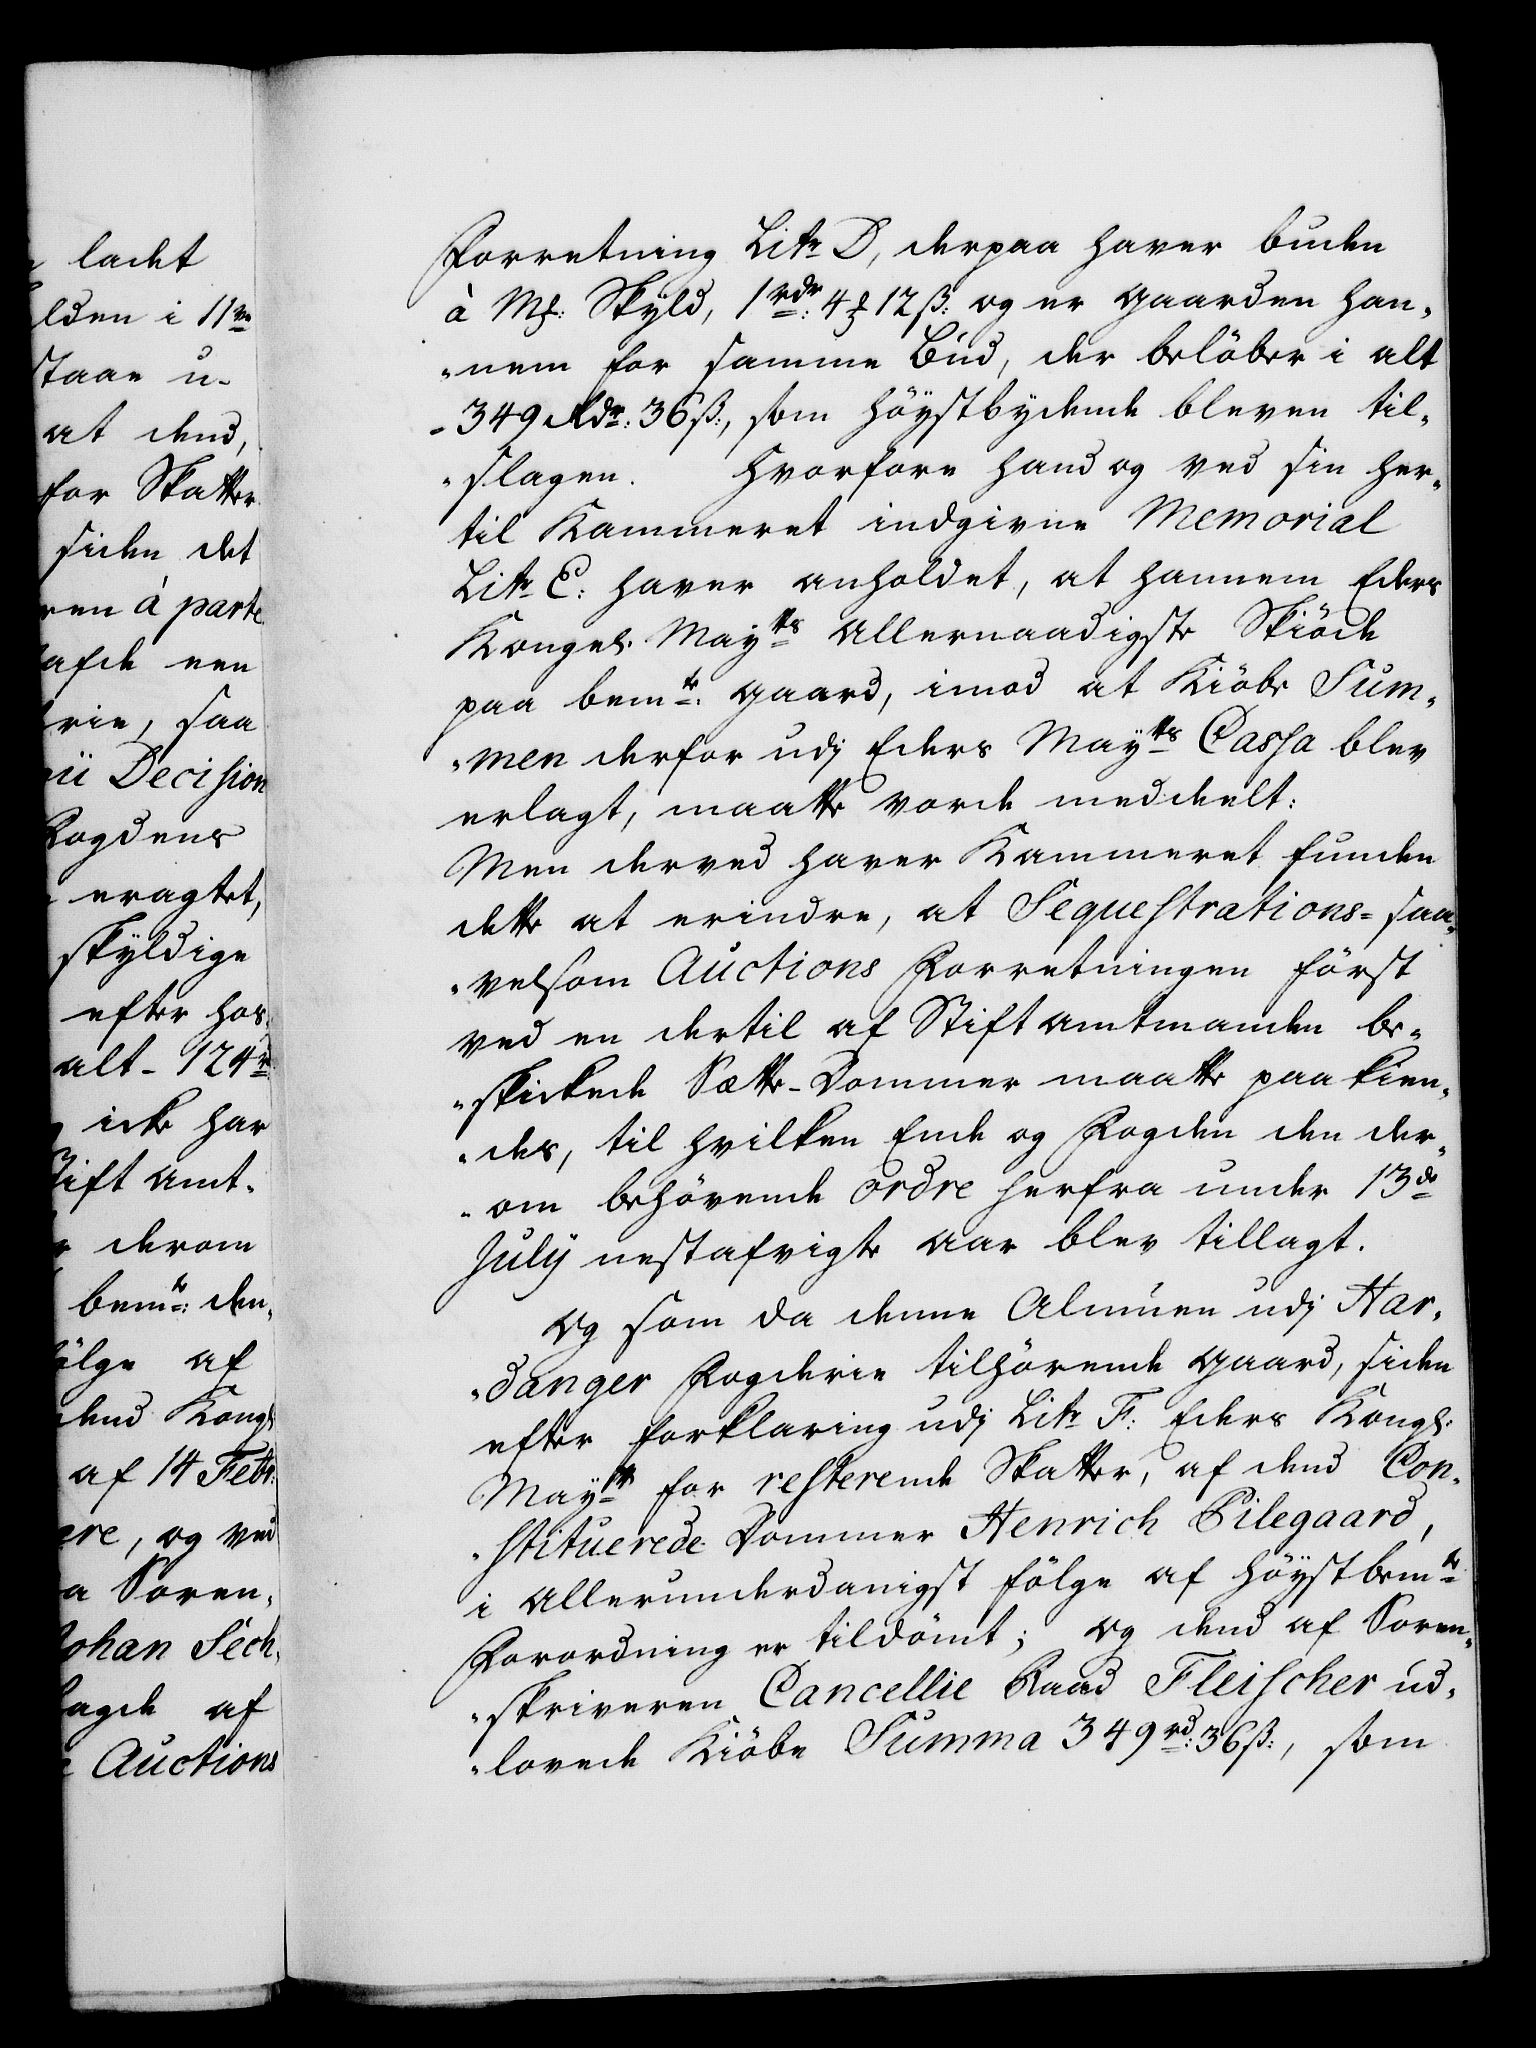 ladet
lden i 11ve
staae u-
at dend,
for Skatter
siden det
ren à parte
afde een
rie, saa
ii Decision
Fogdens
eragtet,
skyldige
efter hos
alt - 124
icke har
Stift Amt-
derom
bemte: den
fölge af
dend Kongl
af 14 Febr:
ere, og ved
a Soren-
Johan Sech
agde af
Auctions
Forretning Litr D, derpaa haver buden
à Mk: Skyld, 1 rdr: 4 ₰ 12 ß: og er Gaarden han-
-nem for samme Bud, der belöber i alt
- 349 Rdr: 36 ß:, som höystbydende bleven til-
-slagen. Hvorfore hand og ved sin her-
til Kammeret indgivne Memorial
Litr E: haver anholdet, at hannem Eders
Kongel: Maytts Allernaadigste Skiöde
paa bemte: Gaard, imod at Kiöbe Sum-
-men derfor udj Eders Maytts Cassa blev
erlagt, maatte vorde meddeelt:
Men derved haver Kammeret funden
dette at erindre, at Sequestrations- saa-
-velsom Auctions Forretningen först
ved en dertil af Stiftamtmanden be-
-skickede Sætte-Dommer maatte paakien-
-des, til hvilken Ende og Fogden den der-
-om behövende ordre herfra under 13de
July nestafvigte Aar blev tillagt.
Og som da denne Almuen udj Har-
-danger Fogderie tilhörende Gaard, siden
efter forklaring udj Litr F: Eders Kongl:
Maytt for resterende Skatter, af dend Con-
-stituerede Dommer Henrich Pilegaard,
i Allerunderdanigst fölge af höystbemte
Forordning er tildömt; Og dend af Soren-
-skriveren Cancellie Raad Fleischer ud-
-lovede Kiöbe Summa 349 rd: 36 ß:, som